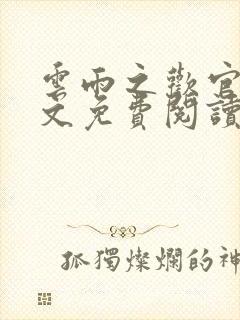 雲雨之歡官
文免費閱讀
孤獨燦爛的神